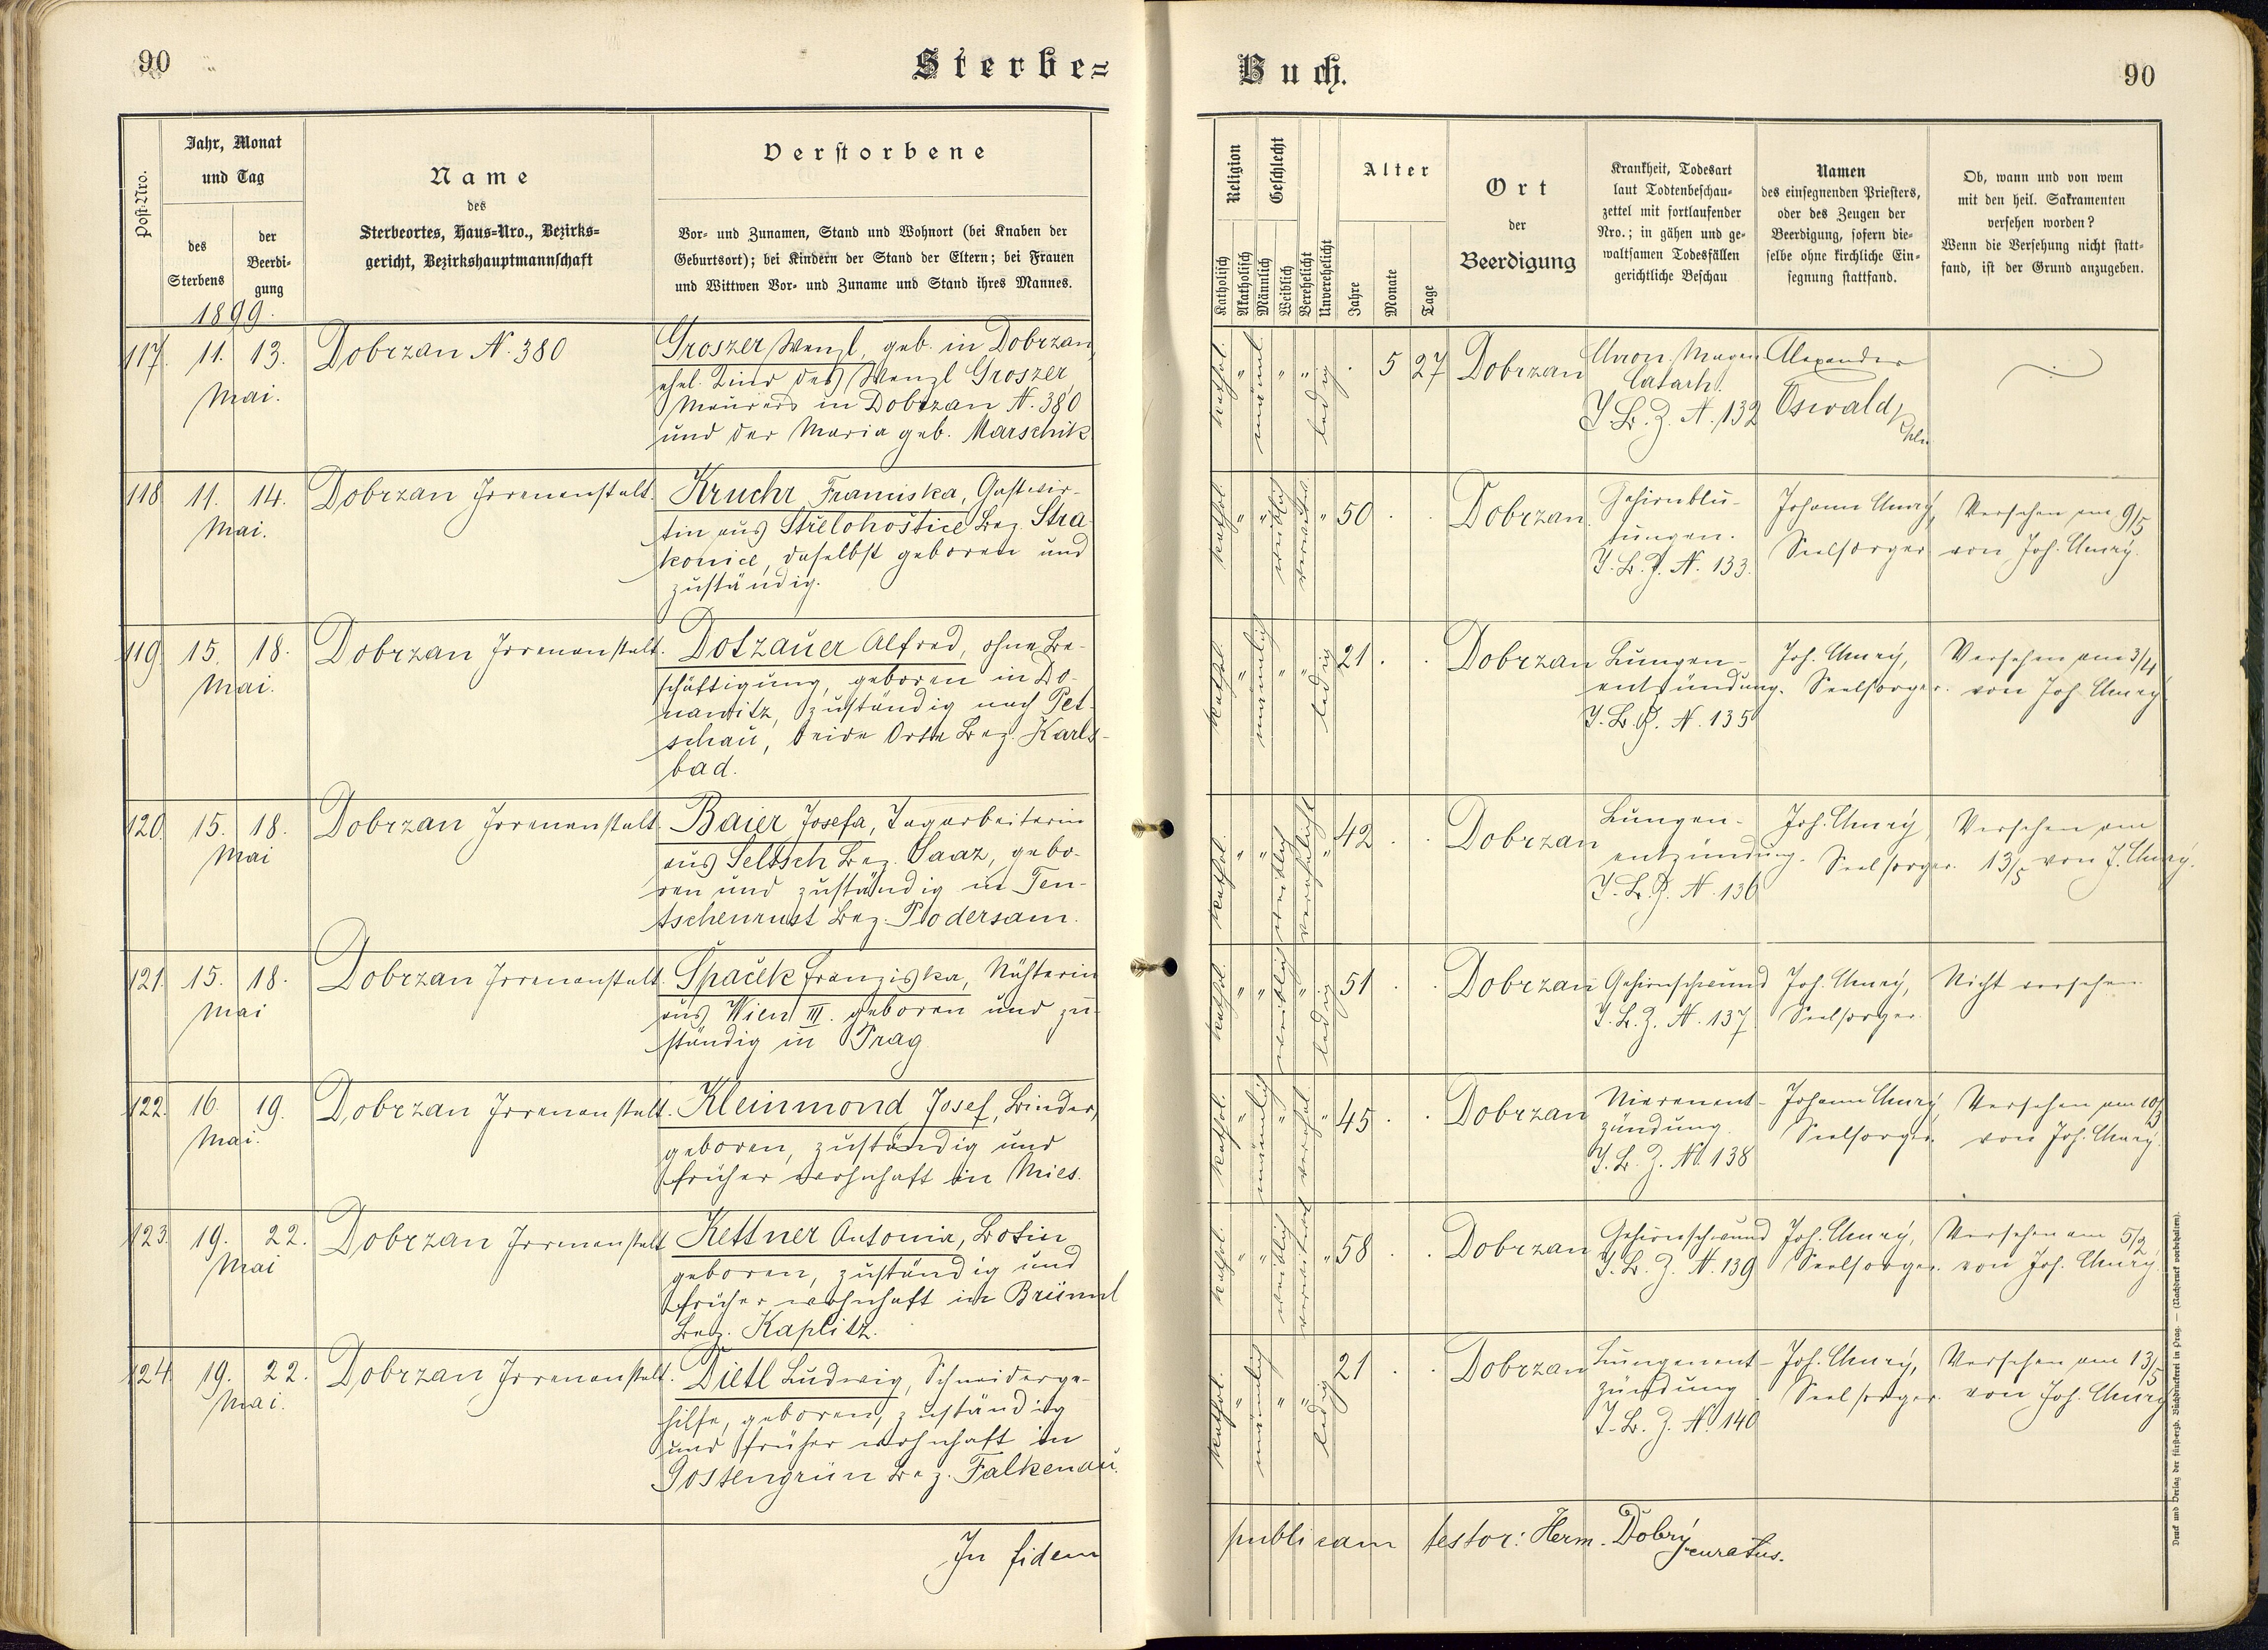 90
Sterbe=
Buch.
90
Post-Nro.
Jahr, Monat
und Tag
des
Sterbens
der
Beerdi-
gung
1899.
Name
des
Sterbeortes, Haus-Nro., Bezirks-
gericht, Bezirkshauptmannschaft
Verstorbene
Vor- und Zunamen, Stand und Wohnort (bei Knaben der
Geburtsort); bei Kindern der Stand der Eltern; bei Frauen
und Wittwen Vor- und Zuname und Stand ihres Mannes.
Religion
Katholisch
Akatholisch
Geschlecht
Männlich
Weiblich
Verehelicht
Unverehelicht
Alter
Jahre
Monate
Tage
Ort
der
Beerdigung
Krankheit, Todesart
laut Todtenbeschau-
zettel mit fortlaufender
Nro.; in gähen und ge-
waltsamen Todesfällen
gerichtliche Beschau
Namen
des einsegnenden Priesters,
oder des Zeugen der
Beerdigung, sofern die-
selbe ohne kirchliche Ein-
segnung stattfand.
Ob, wann und von wem
mit den heil. Sakramenten
versehen worden?
Wenn die Versehung nicht statt-
fand, ist der Grund anzugeben.
117. 11. 13.
Mai.
Dobrzan N. 380
Groszer Wenzl, geb. in Dobrzan,
ehel. Kind des Wenzl Groszer,
Maurers in Dobrzan N. 380
und der Maria geb. Marschik
kathol. " männl. " " ledig . 5 27
Dobrzan
Chron. Magen
Catarh.
T. B. Z. N. 132
Alexander
Oswald,
118. 11. 14.
Mai.
Dobrzan Irrenanstalt.
Kruchr Franziska, Gastwir-
tin aus Střelohoštice Bez. Stra-
konice, daselbst geboren und
zuständig.
kathol. " " weiblich verwitwet " 50 . .
Dobrzan
Gehirnblu-
tungen.
T. B. Z. N. 133.
Johann Umrý,
Seelsorger
Versehen am 9/5
von Joh. Umrý.
119. 15. 18.
Mai.
Dobrzan Irrenanstalt.
Dotzauer Alfred, ohne Be-
schäftigung, geboren in Do-
nawitz, zuständig nach Pet-
schau, beide Orte Bez. Karls-
bad.
kathol. " männlich " " ledig 21 . .
Dobrzan
Lungen-
entzündung.
T. B. Z. N. 135
Joh. Umrý,
Seelsorger.
Versehen am 3/4
von Joh. Umrý
120. 15. 18.
Mai
Dobrzan Irrenanstalt.
Baier Josefa, Tagarbeiterin
aus Seltsch Bez. Saaz, gebo-
ren und zuständig in Ten-
tschenrust Bez. Podersam.
kathol. " " weiblich verehelicht " 42 . .
Dobrzan
Lungen-
entzündung.
T. B. Z. N. 136
Joh. Umrý,
Seelsorger.
Versehen am
13/5 von J. Umrý.
121. 15. 18.
Mai
Dobrzan Irrenanstalt.
Špaček Franziska, Nähterin
aus Wien III. geboren und zu-
ständig in Prag
kathol. " " weiblich " ledig 51 . .
Dobrzan
Gehirnschwund
T. B. Z. N. 137
Joh. Umrý,
Seelsorger.
Nicht versehen
122. 16. 19.
Mai.
Dobrzan Irrenanstalt.
Kleinmond Josef, Binder,
geboren, zuständig und
früher wohnhaft in Mies.
kathol. " männlich " verehel. " 45 . .
Dobrzan
Nierenent-
zündung.
T. B. Z. N. 138
Johann Umrý,
Seelsorger.
Versehen am 10/3
von Joh. Umrý.
123. 19. 22.
Mai
Dobrzan Irrenanstalt
Kettner Antonia, Botin
geboren, zuständig und
früher wohnhaft in Brünnl
Bez. Kaplitz.
kathol. " " weiblich verwitwet " 58 . .
Dobrzan
Gehirnschwund
T. B. Z. N. 139
Joh. Umrý,
Seelsorger.
Versehen am 5/2
von Joh. Umrý
124. 19. 22.
Mai.
Dobrzan Irrenanstalt.
Dietl Ludwig, Schneiderge-
hilfe, geboren, zuständig
und früher wohnhaft in
Gossengrün Bez. Falkenau.
kathol. " männlich " " ledig 21 . .
Dobrzan
Lungenent-
zündung
T. B. Z. N. 140
Joh. Umrý,
Seelsorger.
Versehen am 13/5
von Joh. Umrý
In fidem
publicam testor: Herm. Dobrý
curatus.
Druck und Verlag der fürst-erzb. Buchdruckerei in Prag. — (Nachdruck vorbehalten).